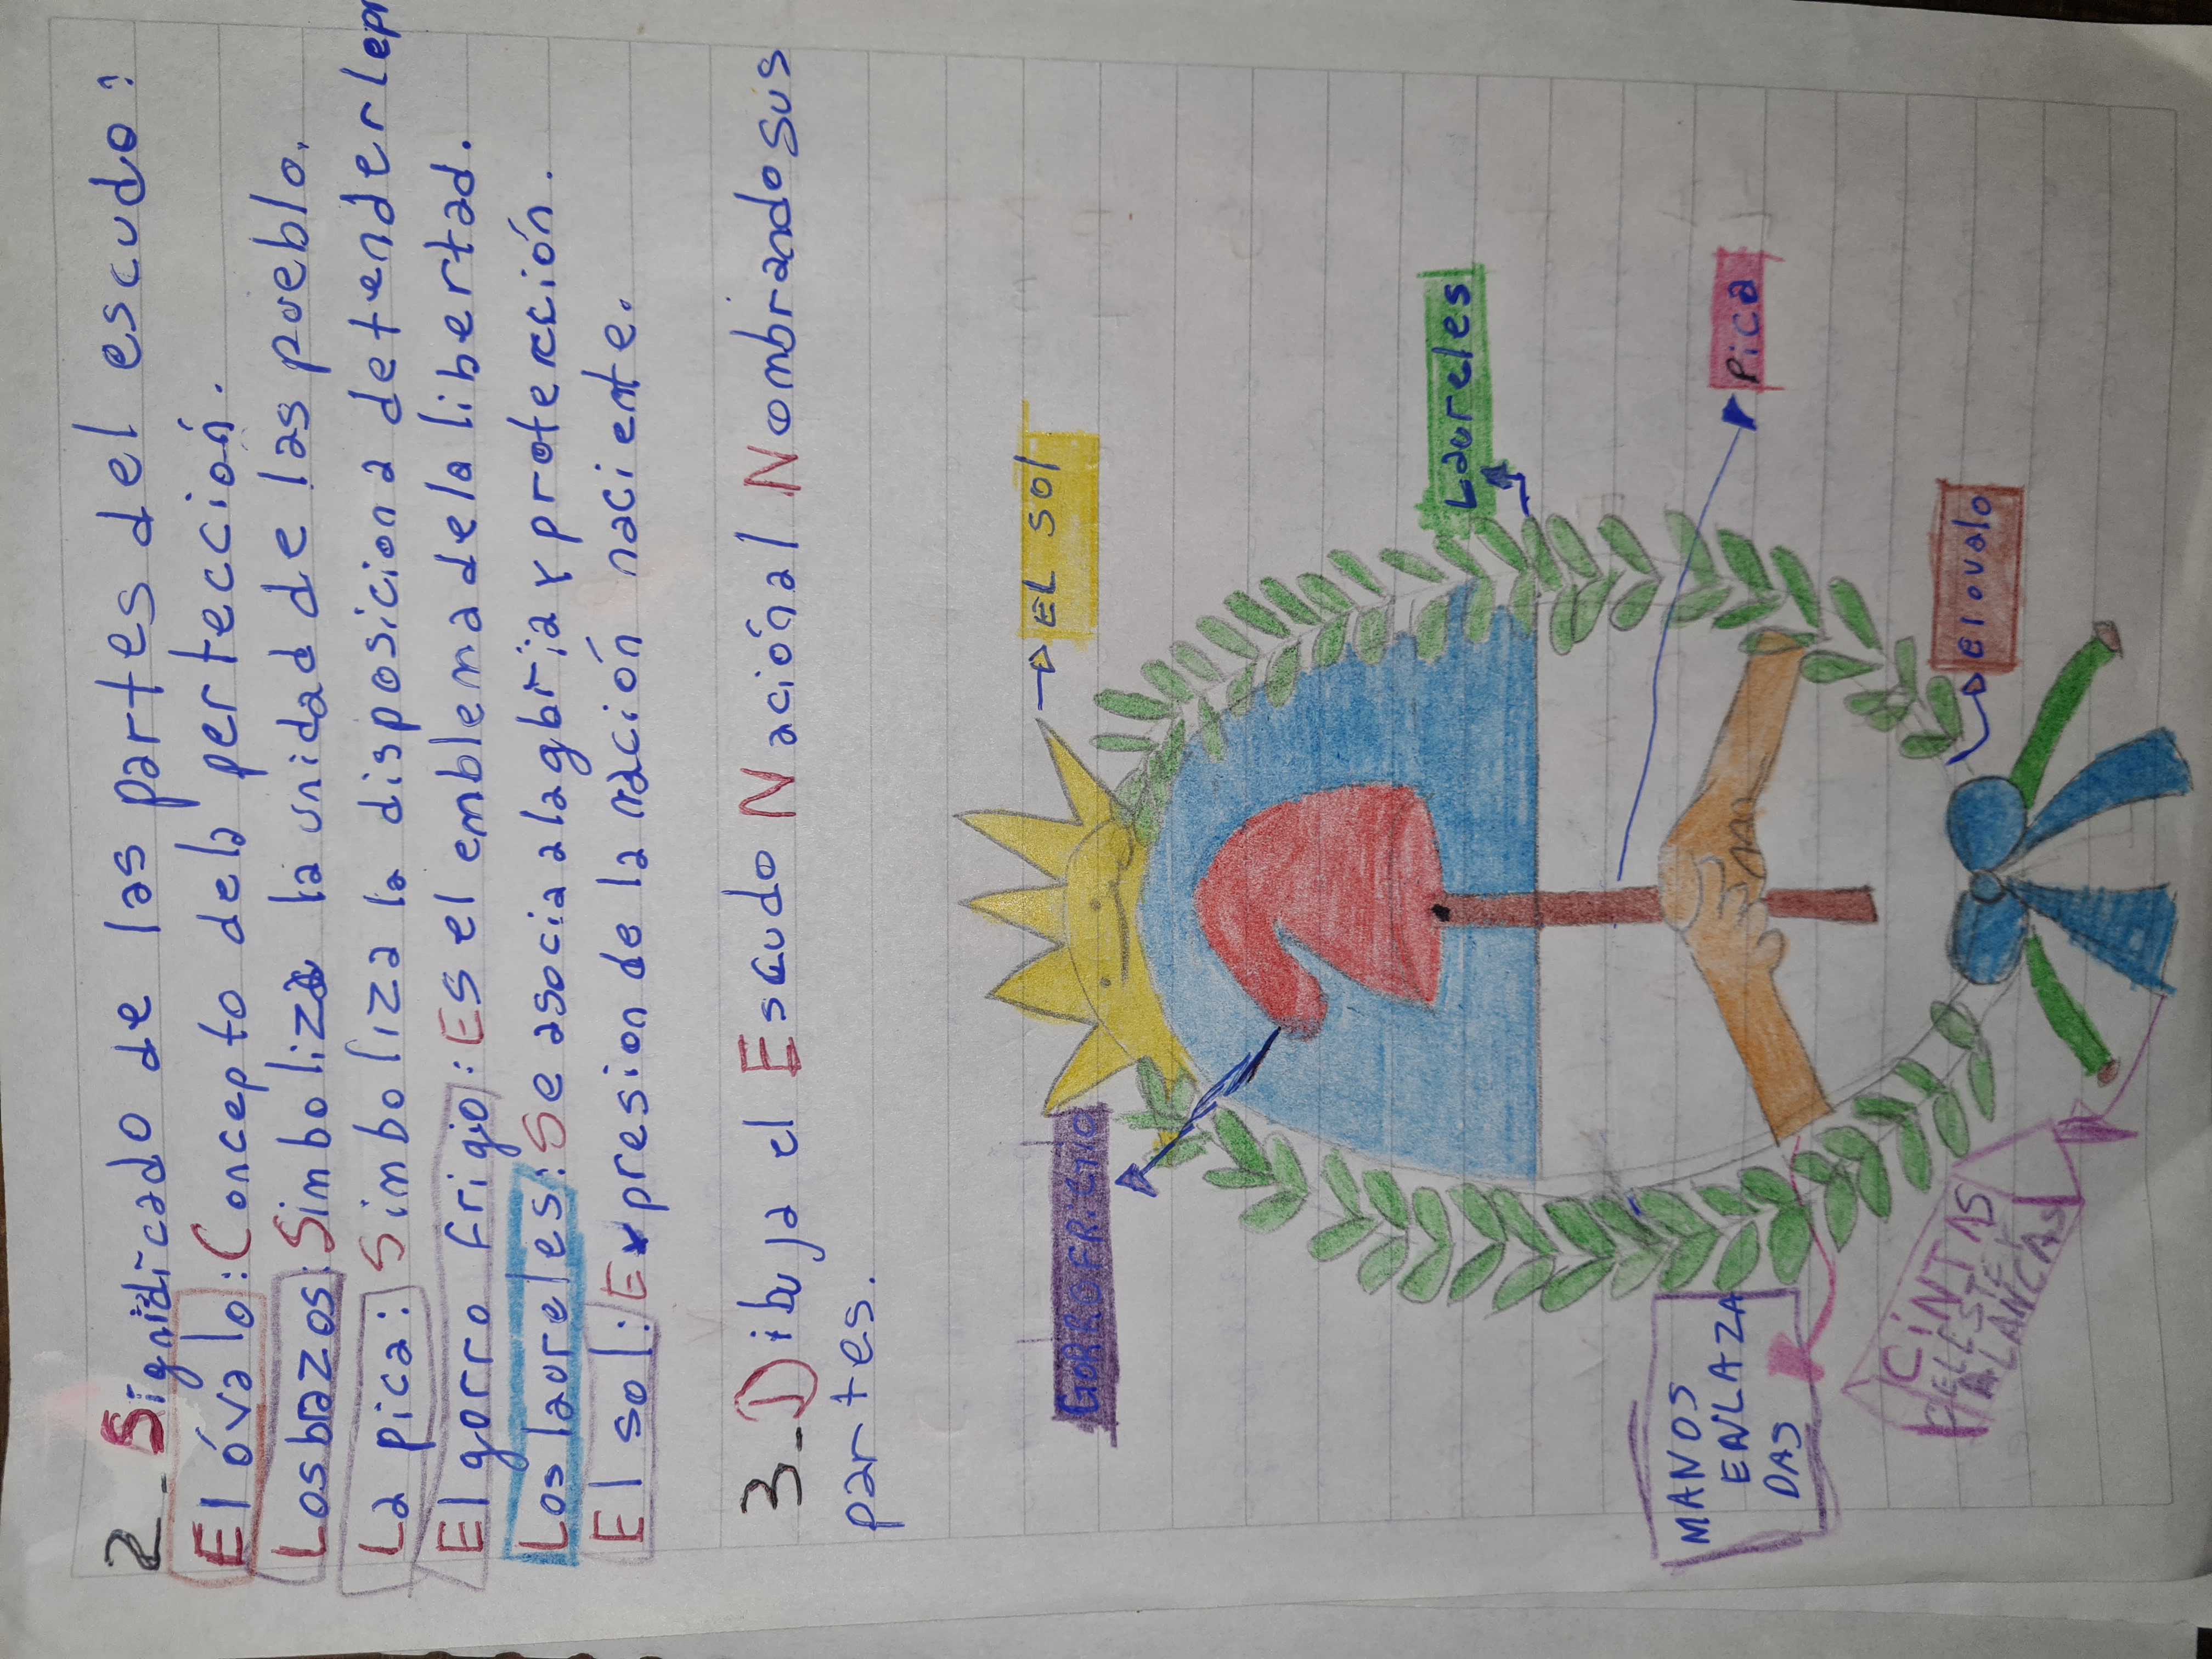 2-Significado de las partes del escudo:
El óvalo: Concepto dela pertección.
Los bazos: Simboliza la unidad de las pueblo.
La pica: Simboliza la disposicion a detender
El gorro frigio: Es el emblema dela libertad.
Los laureles: Se asocia alagbria y protección.
El sol: Expresion de la nación naciente.
3-Dibuja el Escudo Naciónal Nombrando sus
partes.
EL SOl
GORRO FRIGIO
Laureles
Pica
MANOS
ENLAZA
DAS
el ovalo
CINTAS